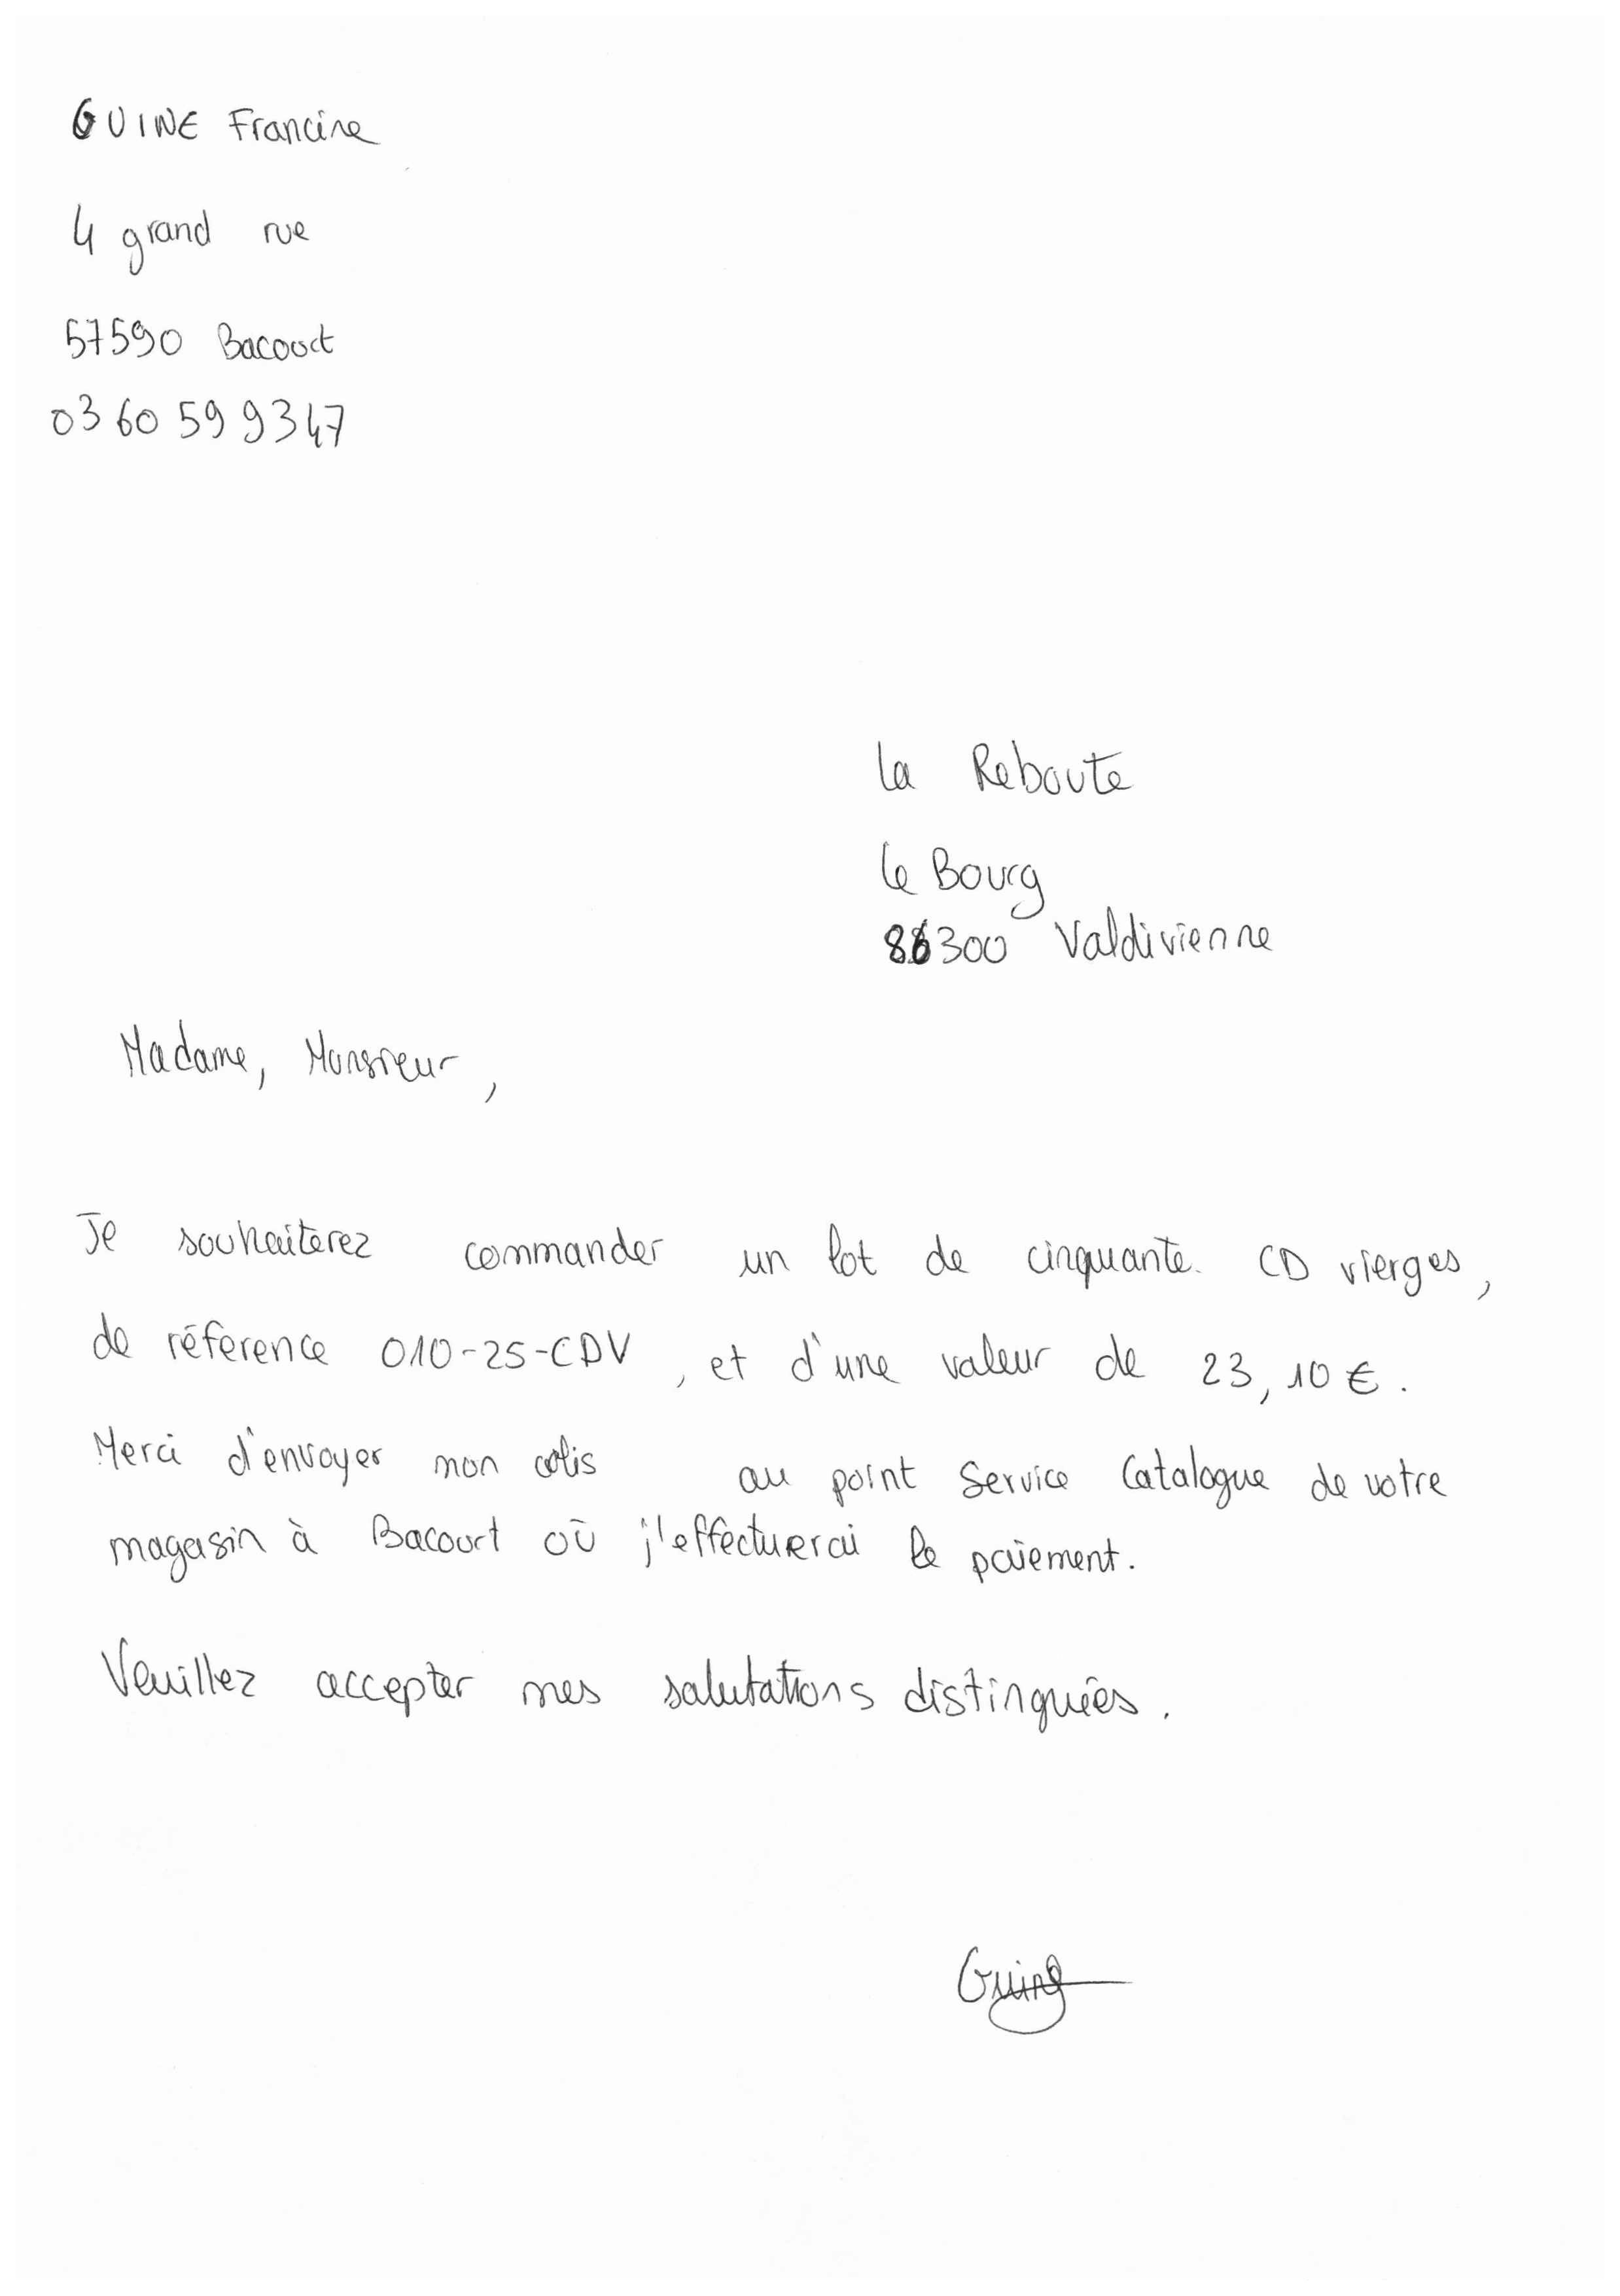 GUINE Francine
4 grand rue
57590 Bacourt
03 60 59 93 47
La Reboute
Le Bourg
86300 Valdivienne
Madame, Monsieur,
Je souhaiterez commander un lot de cinquante CD vierges,
de référence 010-25-CDV, et d'une valeur de 23,10 €.
Merci d'envoyer mon colis au point Service Catalogue de votre
magasin à Bacourt où j'effectuerai le paiement.
Veuillez accepter mes salutations distinguées.
Guine